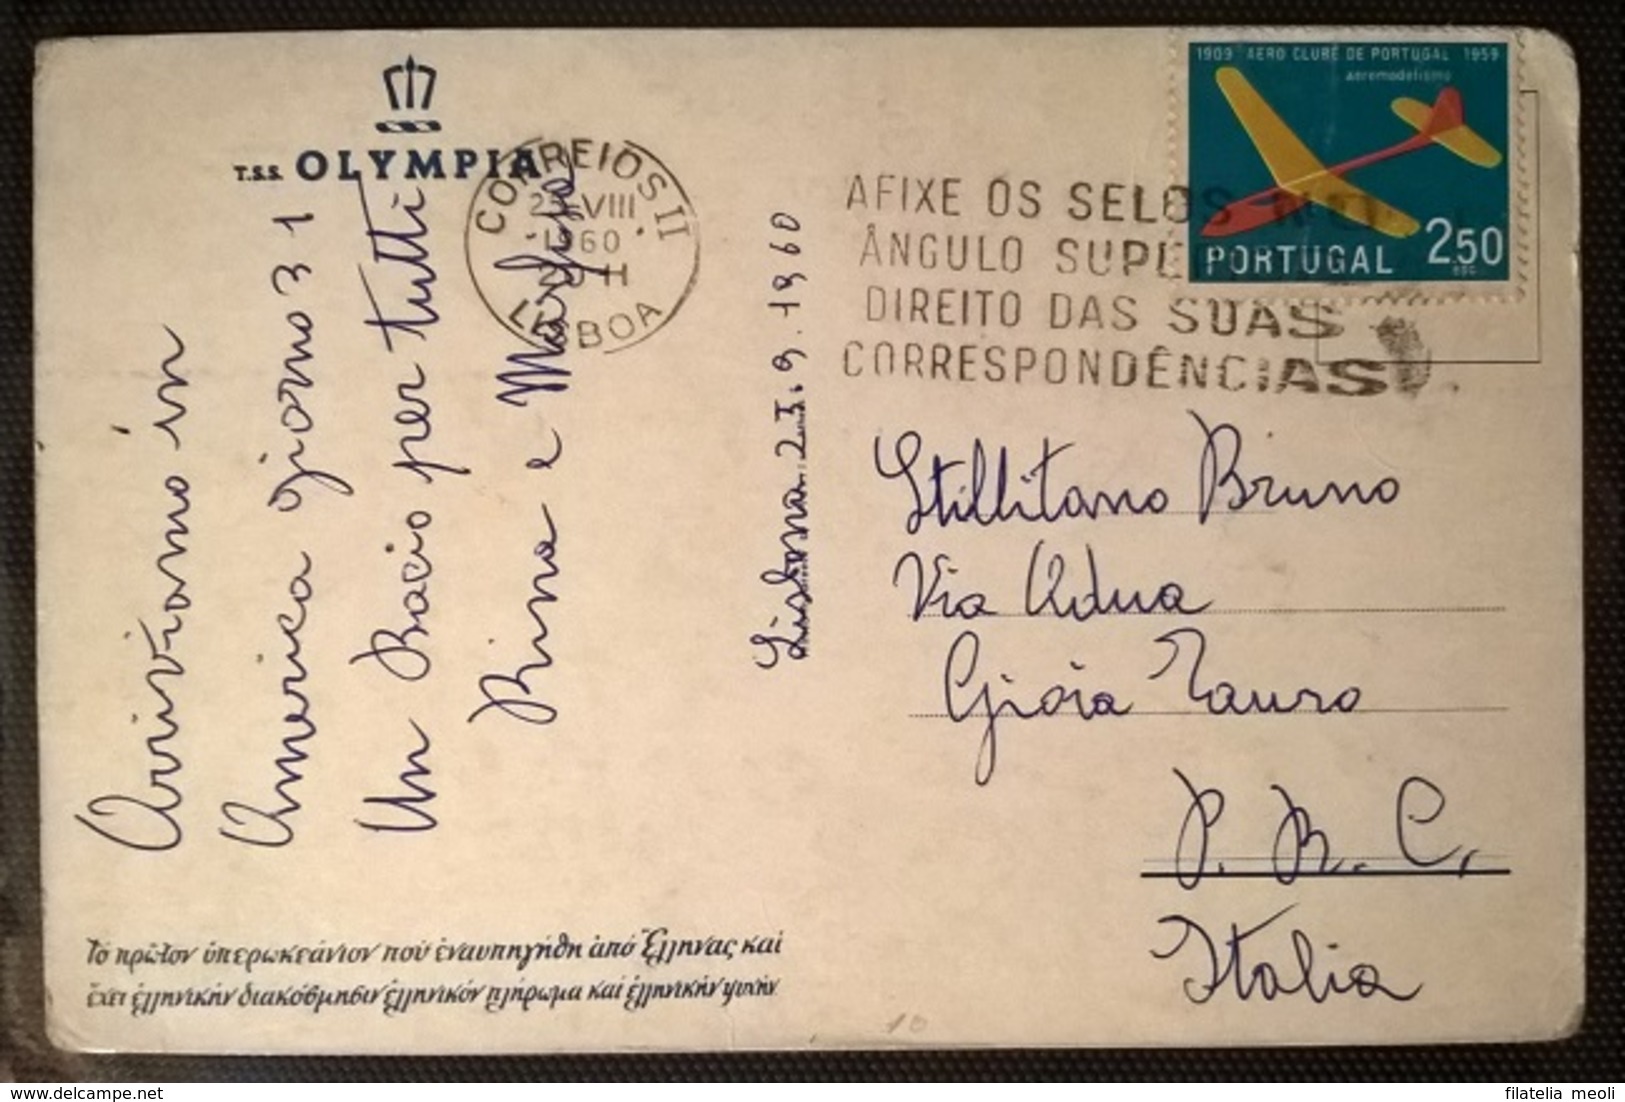 T.S.S. OLYMPIA
Arriviamo in
America giorno 31
Un Bacio per tutti
Rina e
Lisbona
1960
CORREIOS II
VIII
1960
LISBOA
AFIXE OS SELOS NO
ÂNGULO SUPE
DIREITO DAS SUAS
CORRESPONDÊNCIAS
1909 AERO CLUBE DE PORTUGAL 1959
aeromodelismo
2$50
PORTUGAL
Stillitano Bruno
Via Adua
Gioia Tauro
P. R. C.
Italia
Τὸ πρῶτον ὑπερωκεάνιον ποὺ ἐναυπηγήθη ἀπὸ Ἕλληνας καὶ
ἔχει ἑλληνικὴν διακόσμησιν ἑλληνικὸν πλήρωμα καὶ ἑλληνικὴν ψυχήν.
10
filatelia meoli